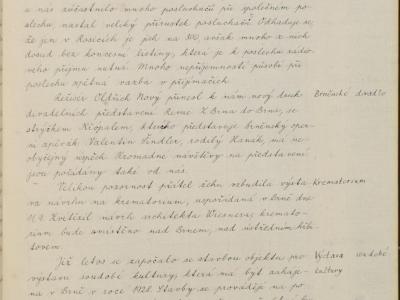 u nás zúčastnilo mnoho posluchačů při společném po-
slechu nastal veliký přírustek posluchačů. Odhaduje se,
že jen v Rosicích je jich na 300, avšak mnoho z nich
dosud bez koncesní listiny, která je k poslechu rádio-
vého příjmu nutná. Mnoho nepříjemností působí při
poslechu zpětná vazba v přijímačích.
Režisér Oldřich Nový přinesl k nám nový druh
Brněnské divadlo
divadelních představení. Revue Z Brna do Brna, se
strýčkem Kócpalem, kterého představuje brněnský oper-
ní zpěvák Valentin Šindler, rodilý Hanák, má ne-
obyčejný úspěch. Hromadné návštěvy na představení
jsou pořádány také od nás.
Velikou pozornost přátel žehu vzbudila výsta-
Krematorium
va návrhů na krematorium, uspořádaná v Brně dne
zvítězil návrh architekta Wiesnera; kremato-
rium bude umístěno nad Brnem, nad ústředním hřbi-
tovem.
Již letos se započalo se stavbou objektů pro
Výstava soudobé
výstavu soudobé kultury, která má být zaháje-
kultury
na v Brně v roce 1928. Stavby se provádějí na po-